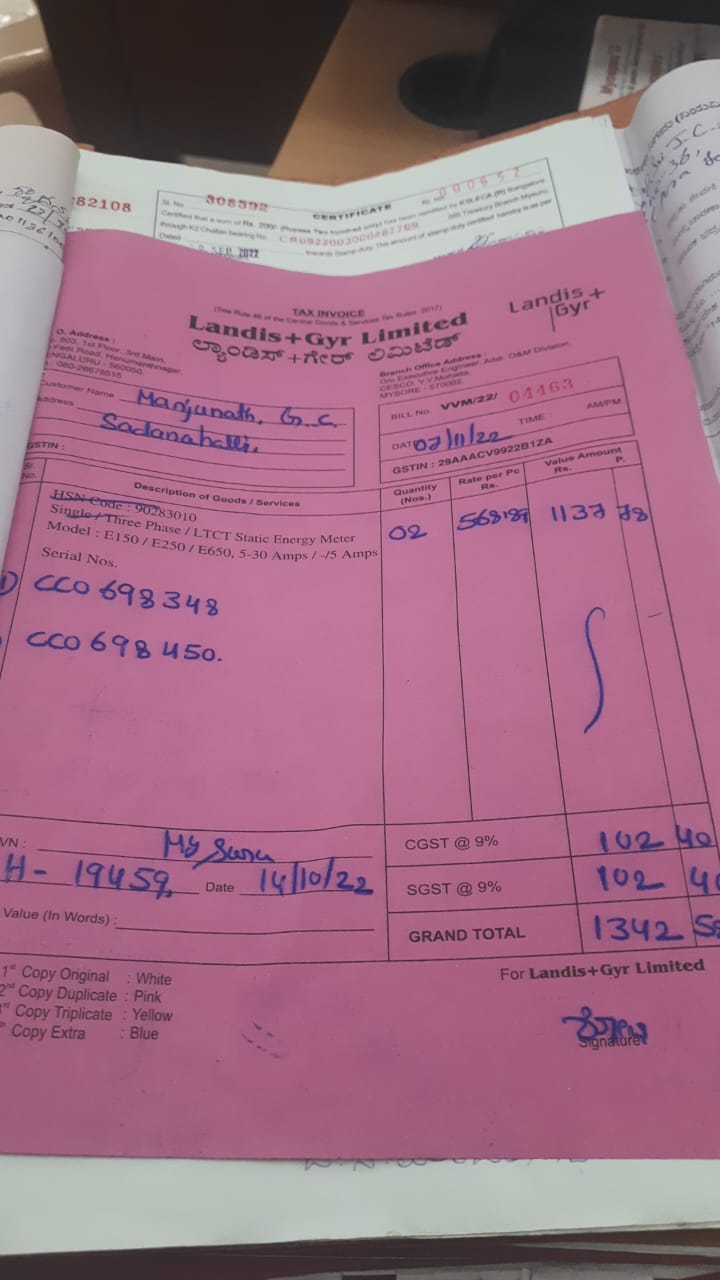 82108
Sl. No. 308592
CERTIFICATE
000652
Certified that a sum of Rs. 200/- (Rupees Two hundred only) has been remitted by
through K2 Challan bearing No. CR0922003000487769
Dated SEP 2022
TAX INVOICE
(See Rule 46 of the Central Goods & Services Tax Rules, 2017)
Landis+Gyr Limited
ಲ್ಯಾಂಡಿಸ್+ಗೇರ್ ಲಿಮಿಟೆಡ್
Landis+
Gyr
O. Address :
603, 1st Floor, 3rd Main,
Feet Road, Hanumanthnagar
ENGALURU - 560050.
080-26678516
Branch Office Address :
C/o Executive Engineer, Addl. O&M Division,
CESCO, V.V.Mohalla,
MYSORE - 570002.
Customer Name Manjunath. G.C.
Address Sadanahalli,
GSTIN :
BILL No. VVM/22/ 04463
TIME : AM/PM
DATE 07/11/22
GSTIN : 29AAACV9922B1ZA
Sl. No.
Description of Goods / Services
Quantity (Nos.)
Rate per Pc Rs.
Value Amount
Rs. P.
HSN Code : 90283010
Single / Three Phase / LTCT Static Energy Meter
Model : E150 / E250 / E650, 5-30 Amps / -/5 Amps
02 568.89 1137 78
Serial Nos.
1) CCO 698348
CCO 698450.
VN : Mysuru
H- 19459, Date 14/10/22
Value (In Words) :
CGST @ 9% 102 40
SGST @ 9% 102 40
GRAND TOTAL 1342 58
1st Copy Original : White
2nd Copy Duplicate : Pink
rd Copy Triplicate : Yellow
Copy Extra : Blue
For Landis+Gyr Limited
Signature